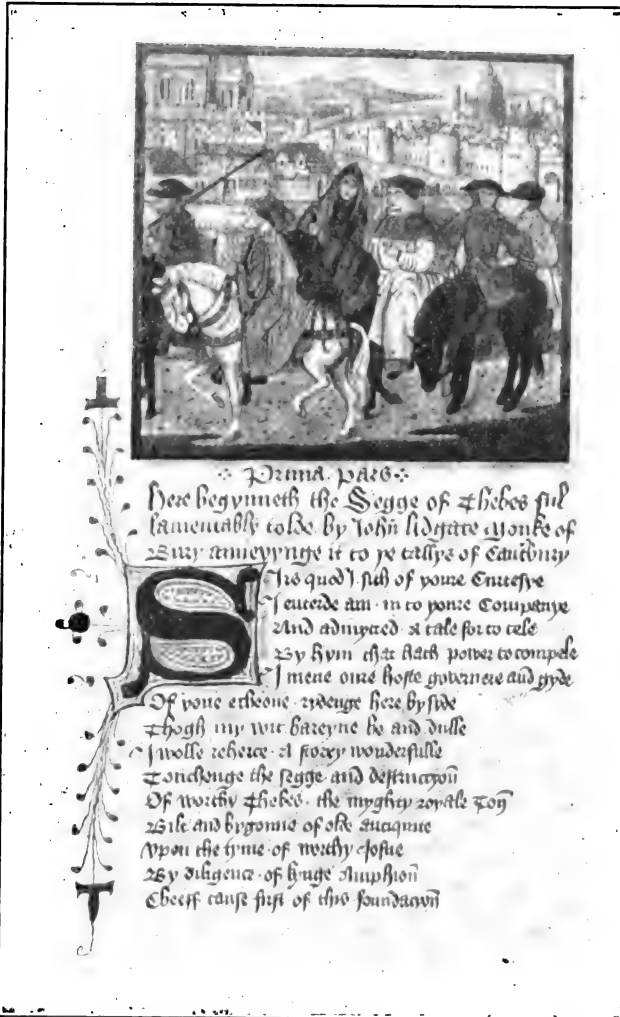 Prima Pars
Here begynneth the Segge of Thebes ful
lamentably tolde by John lidgate Monke of
Bury anneyynge it to ye tallys of Cantbury
Sirs quod I sith of youre Curtesye
I enterde am in to youre Companye
And admytted A tale for to tele
By hym that hath power to compele
I mene oure hoste governere and gyde
Of youe echeone rydenge here by syde
Thogh my wit bareyne be and dulle
I wolle reherce A storey wonderfulle
Touchenge the segge and destruccyoun
Of worthy Thebes the myghty royale Toun
Bilt and bygonne of olde antiquite
Upon the tyme of worthy Josue
By diligence of kynge Amphion
Cheeff cause first of this foundacioun